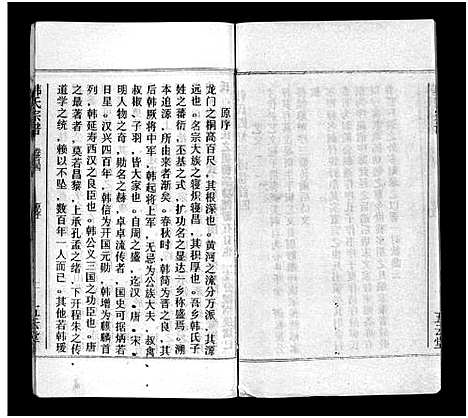 原序
龙门之桐高百尺，其根深也。黄河之流分万派，其源
远也。名宗大族之寝炽寝昌，其积厚也。吾乡韩氏子
姓之蕃衍，丕基之式，扩功名之显达一乡称盛焉。溯
本追源，所由来者渐矣。春秋时，韩简为晋之良，其
后韩厥将中军，韩起将上军，无忌为公族大夫，叔禽
叔椒，子羽，皆大家也。自周之盛，迄汉。唐。宋。
明人物之奇，勋名之赫，卓卓流传者，国史可据炳若
日星。汉兴四百年，韩信为开国元勋，韩增为麒麟首
列，韩延寿西汉之良臣也。韩公义三国之功臣也。唐
之最著者，莫若昌黎，上承孔孟之绪，下开程朱之传
道学之统，赖以不坠，数百年一人而已。其他若韩瑗
韩氏宗谱
五云堂